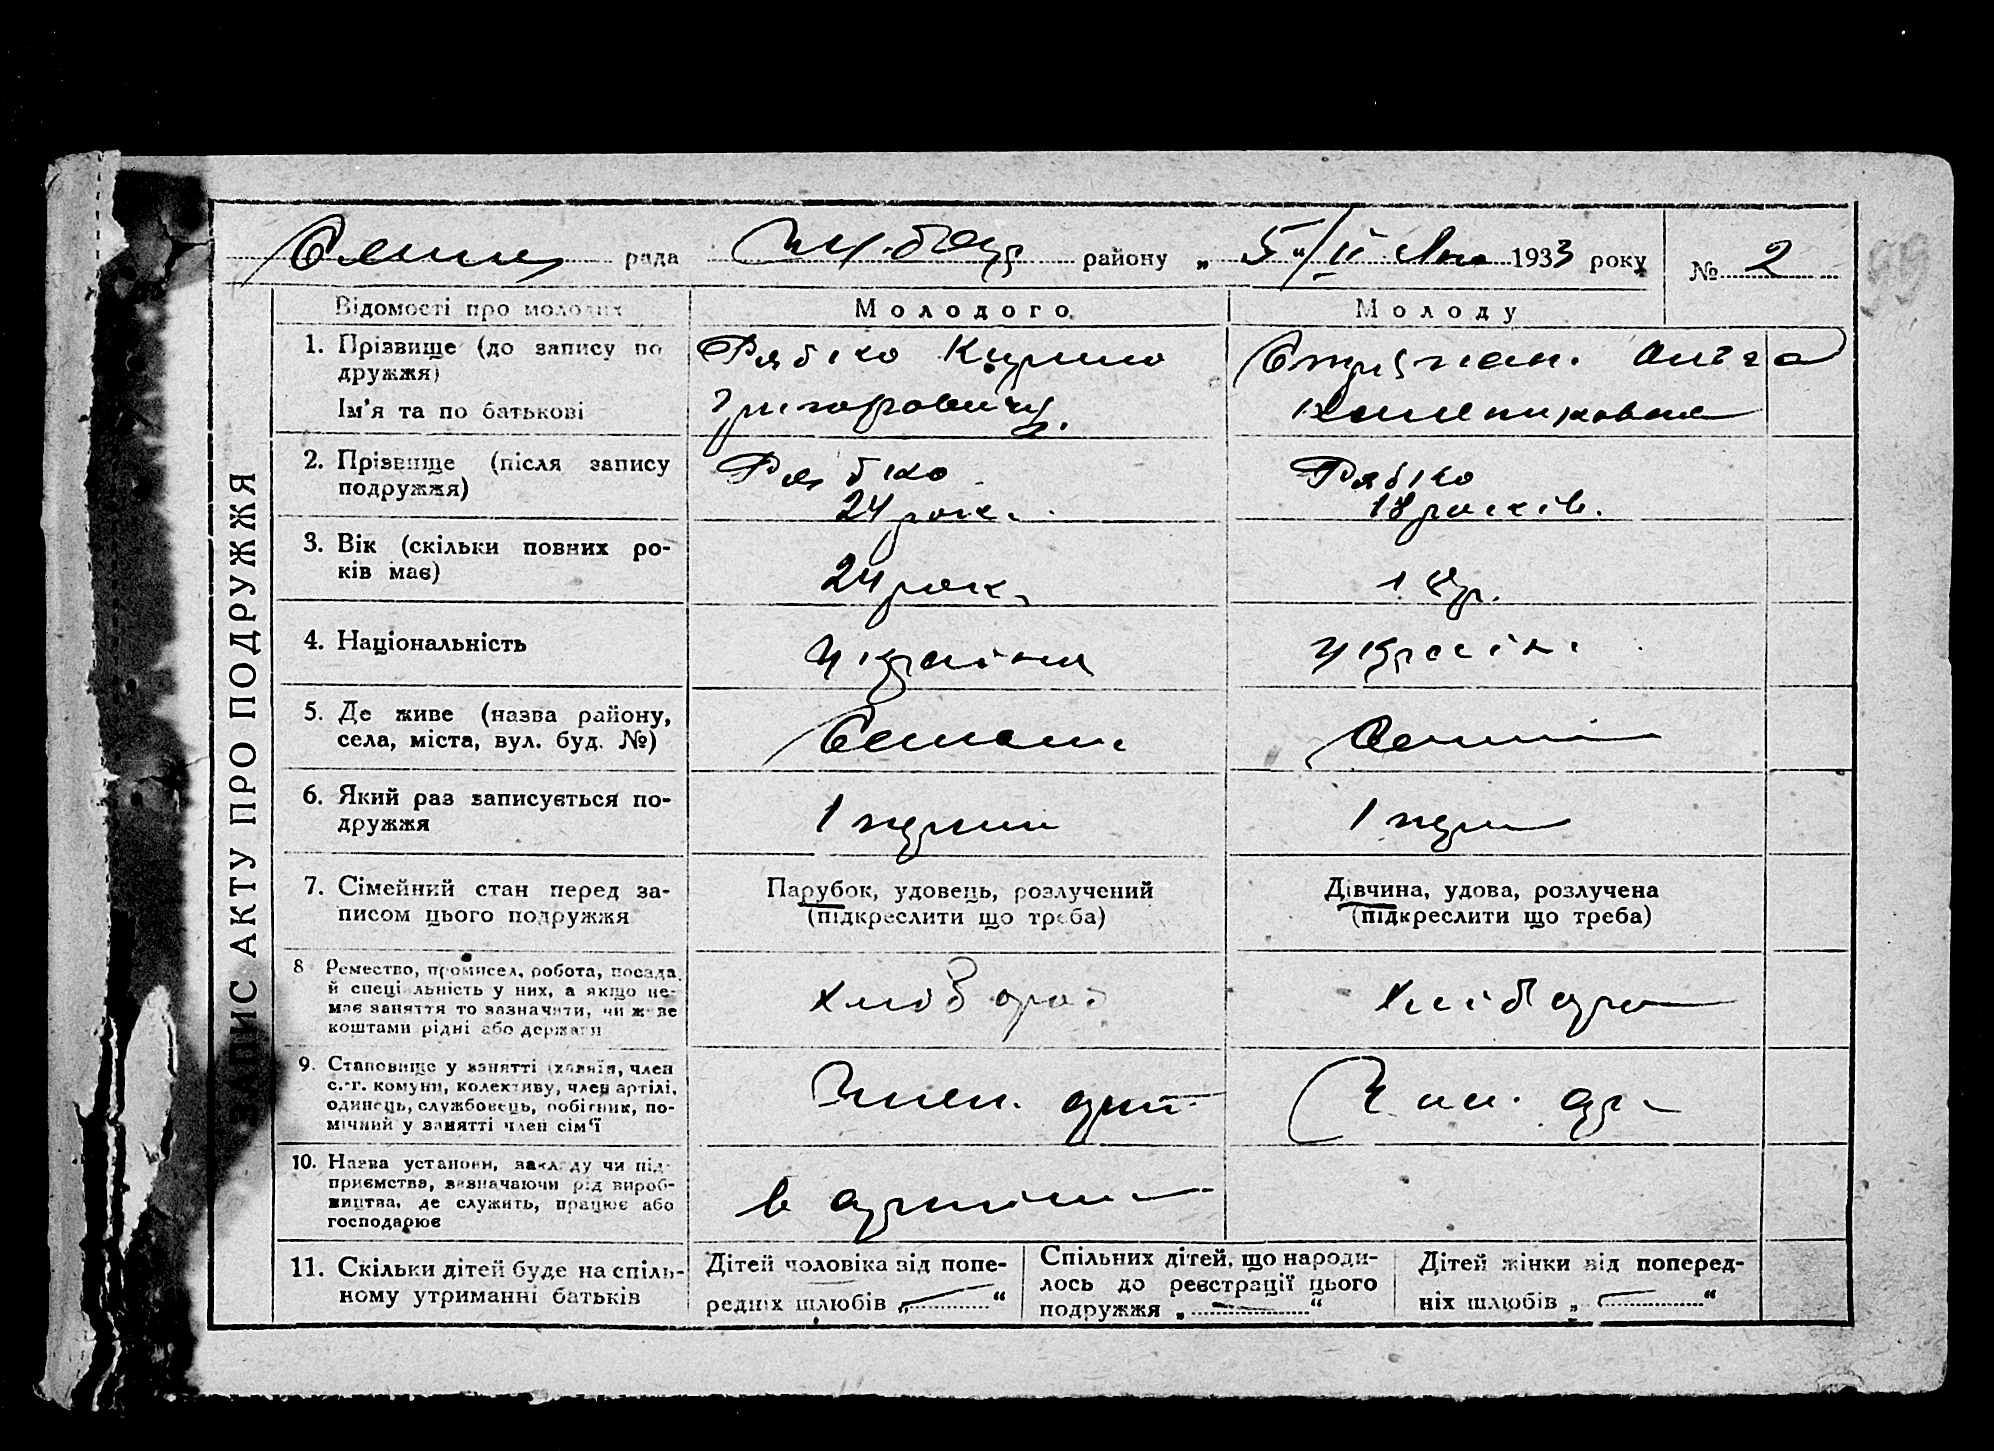 рада району „ 5 “ / II 1933 року № 2
99
ЗАПИС АКТУ ПРО ПОДРУЖЖЯ
Відомості про молодих Молодого Молоду
1. Прізвище (до запису по
дружжя)
Ім'я та по батькові
Рябіко Кирило
Григоровичу.
Ольга
2. Прізвище (після запису
подружжя)
Рябіко
24 рок.
Рябіко
18 рокків.
3. Вік (скільки повних ро-
ків має)
24 рок.
18 р.
4. Національність
україн
україн.
5. Де живе (назва району,
села, міста, вул. буд. №)
6. Який раз записується по-
дружжя
1 перший
1 перш
7. Сімейний стан перед за-
писом цього подружжя
Парубок, удовець, розлучений
(підкреслити що треба)
Дівчина, удова, розлучена
(підкреслити що треба)
8 Ремество, промисел, робота, посада
й спеціальність у них, а якщо не-
має заняття то зазначити, чи живе
коштами рідні або держави
хлібороб
хлібороб
9. Становище у занятті (хазяїн, член
с.-г. комуни, колективу, член артілі,
одинець, службовець, робітник, по-
мічний у занятті член сім'ї
Член. арт.
Член. ар
10. Назва установи, закладу чи під-
приємства, зазначаючи рід вироб-
ництва, де служить, працює або
господарює
в артілі
11. Скільки дітей буде на спіль-
ному утриманні батьків
Дітей чоловіка від попе-
редніх шлюбів „ — “
Спільних дітей, що народи-
лось до реєстрації цього
подружжя „ — “
Дітей жінки від поперед-
ніх шлюбів „ — “